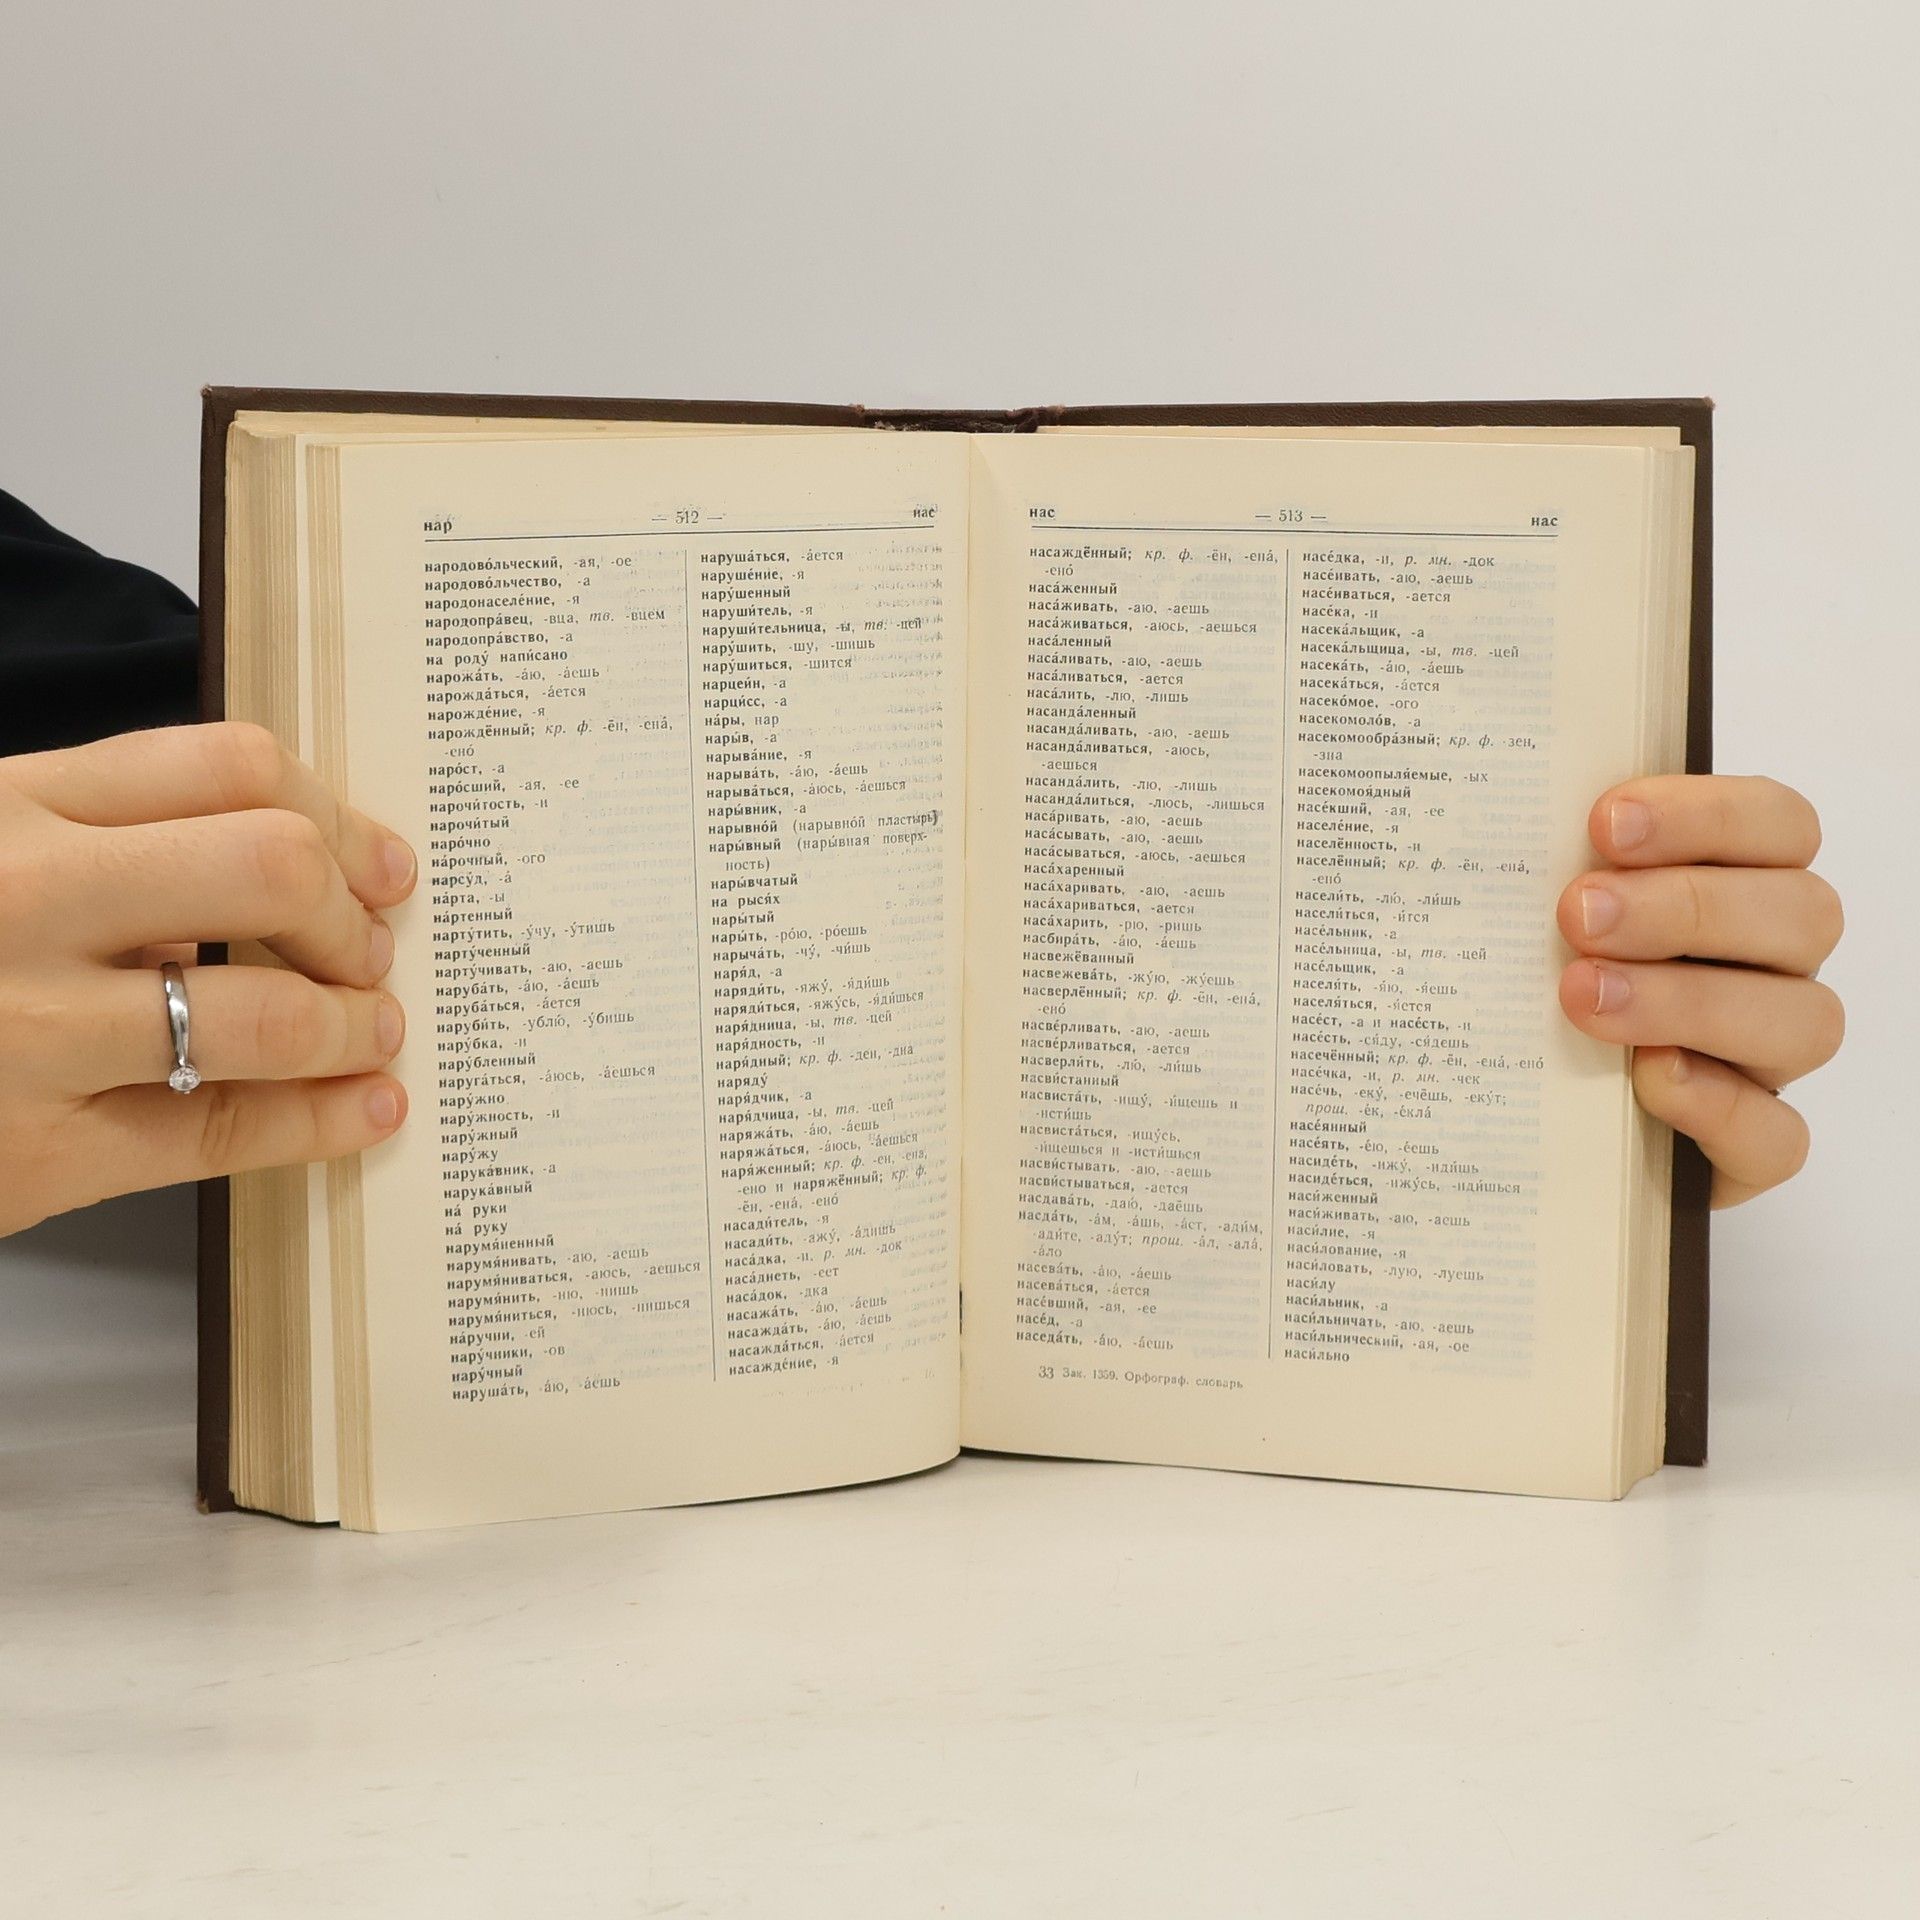 нар — 512 — нас
народово́льческий, -ая, -ое
народово́льчество, -а
народонаселе́ние, -я
народопра́вец, -вца, тв. -вцем
народопра́вство, -а
на роду́ напи́сано
нарожа́ть, -а́ю, -а́ешь
нарожда́ться, -а́ется
нарожде́ние, -я
нарождённый; кр. ф. -ён, -ена́,
-ено́
наро́ст, -а
наро́сший, -ая, -ее
нарочи́тость, -и
нарочи́тый
наро́чно
на́рочный, -ого
нарсу́д, -а́
на́рта, -ы
на́ртенный
нарту́тить, -у́чу, -у́тишь
нарту́ченный
нарту́чивать, -аю, -аешь
наруба́ть, -а́ю, -а́ешь
наруба́ться, -а́ется
наруби́ть, -ублю́, -у́бишь
нару́бка, -и
нару́бленный
наруга́ться, -а́юсь, -а́ешься
нару́жно
нару́жность, -и
нару́жный
нару́жу
нарука́вник, -а
нарука́вный
на́ руки
на́ руку
нарумя́ненный
нарумя́нивать, -аю, -аешь
нарумя́ниваться, -аюсь, -аешься
нарумя́нить, -ню, -нишь
нарумя́ниться, -нюсь, -нишься
на́ручни, -ей
нару́чники, -ов
нару́чный
наруша́ть, -а́ю, -а́ешь
наруша́ться, -а́ется
наруше́ние, -я
нару́шенный
наруши́тель, -я
наруши́тельница, -ы, тв. -цей
нару́шить, -шу, -шишь
нару́шиться, -шится
нарцеи́н, -а
нарци́сс, -а
на́ры, нар
нары́в, -а
нарыва́ние, -я
нарыва́ть, -а́ю, -а́ешь
нарыва́ться, -а́юсь, -а́ешься
нары́вник, -а
нарывно́й (нарывно́й пластырь)
нары́вный (нары́вная поверх-
ность)
нары́вчатый
на рыся́х
нары́тый
нары́ть, -ро́ю, -ро́ешь
нарыча́ть, -чу́, -чи́шь
наря́д, -а
наряди́ть, -яжу́, -я́ди́шь
наряди́ться, -яжу́сь, -я́ди́шься
наря́дница, -ы, тв. -цей
наря́дность, -и
наря́дный; кр. ф. -ден, -дна
наряду́
наря́дчик, -а
наря́дчица, -ы, тв. -цей
наряжа́ть, -а́ю, -а́ешь
наряжа́ться, -а́юсь, -а́ешься
наря́женный; кр. ф. -ен, -ена,
-ено и наряжённый; кр. ф.
-ён, -ена́, -ено́
насади́тель, -я
насади́ть, -ажу́, -а́дишь
наса́дка, -и, р. мн. -док
наса́днеть, -еет
наса́док, -дка
насажа́ть, -а́ю, -а́ешь
насажда́ть, -а́ю, -а́ешь
насажда́ться, -а́ется
насажде́ние, -я
нас — 513 — нас
насаждённый; кр. ф. -ён, -ена́,
-ено́
наса́женный
наса́живать, -аю, -аешь
наса́живаться, -аюсь, -аешься
наса́ленный
наса́ливать, -аю, -аешь
наса́ливаться, -ается
наса́лить, -лю, -лишь
насанда́ленный
насанда́ливать, -аю, -аешь
насанда́ливаться, -аюсь,
-аешься
насанда́лить, -лю, -лишь
насанда́литься, -люсь, -лишься
наса́ривать, -аю, -аешь
наса́сывать, -аю, -аешь
наса́сываться, -аюсь, -аешься
наса́харенный
наса́харивать, -аю, -аешь
наса́хариваться, -ается
наса́харить, -рю, -ришь
насбира́ть, -а́ю, -а́ешь
насвежёванный
насвежева́ть, -жу́ю, -жу́ешь
насверлённый; кр. ф. -ён, -ена́,
-ено́
насве́рливать, -аю, -аешь
насве́рливаться, -ается
насверли́ть, -лю́, -ли́шь
насви́станный
насвиста́ть, -ищу́, -и́щешь и
-исти́шь
насвиста́ться, -ищу́сь,
-и́щешься и -исти́шься
насви́стывать, -аю, -аешь
насви́стываться, -ается
насдава́ть, -даю́, -даёшь
насда́ть, -а́м, -а́шь, -а́ст, -ади́м,
-ади́те, -аду́т; прош. -а́л, -ала́,
-а́ло
насева́ть, -а́ю, -а́ешь
насева́ться, -а́ется
насе́вший, -ая, -ее
насе́д, -а
наседа́ть, -а́ю, -а́ешь
насе́дка, -и, р. мн. -док
насе́ивать, -аю, -аешь
насе́иваться, -ается
насе́ка, -и
насека́льщик, -а
насека́льщица, -ы, тв. -цей
насека́ть, -а́ю, -а́ешь
насека́ться, -а́ется
насеко́мое, -ого
насекомоло́в, -а
насекомообра́зный; кр. ф. -зен,
-зна
насекомоопыля́емые, -ых
насекомоя́дный
насе́кший, -ая, -ее
населе́ние, -я
населённость, -и
населённый; кр. ф. -ён, -ена́,
-ено́
насели́ть, -лю́, -ли́шь
насели́ться, -и́тся
насе́льник, -а
насе́льница, -ы, тв. -цей
насе́льщик, -а
населя́ть, -я́ю, -я́ешь
населя́ться, -я́ется
насе́ст, -а и насе́сть, -и
насе́сть, -ся́ду, -ся́дешь
насечённый; кр. ф. -ён, -ена́, -ено́
насе́чка, -и, р. мн. -чек
насе́чь, -еку́, -ечёшь, -еку́т;
прош. -е́к, -е́кла́
насе́янный
насе́ять, -е́ю, -е́ешь
насиде́ть, -ижу́, -иди́шь
насиде́ться, -ижу́сь, -иди́шься
наси́женный
наси́живать, -аю, -аешь
наси́лие, -я
наси́лование, -я
наси́ловать, -лую, -луешь
наси́лу
наси́льник, -а
наси́льничать, -аю, -аешь
наси́льнический, -ая, -ое
наси́льно
33 Зак. 1359. Орфограф. словарь